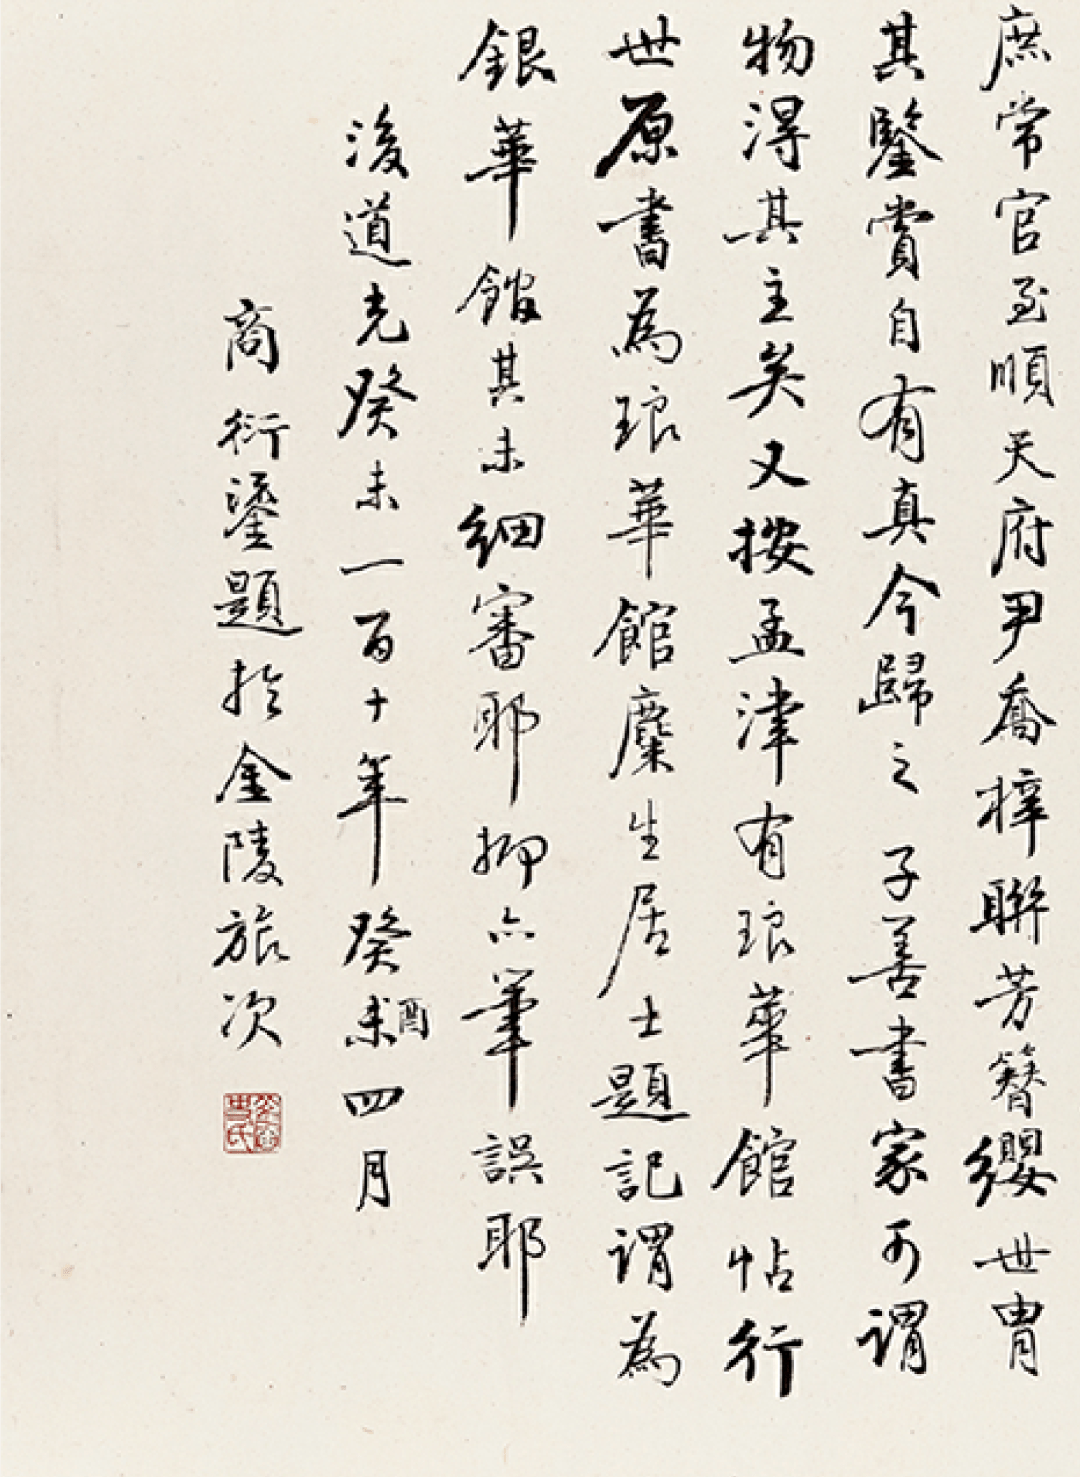 庶常官至順天府尹喬梓聯芳簪纓世冑
其鑒賞自有真今歸之子善書家可謂
物得其主矣又按孟津有琅華館帖行
世原書為琅華館麋生居士題記謂為
銀華館其未細審耶抑亦筆誤耶
後道光癸未一百十年癸未酉四月
商衍鎏題於金陵旅次